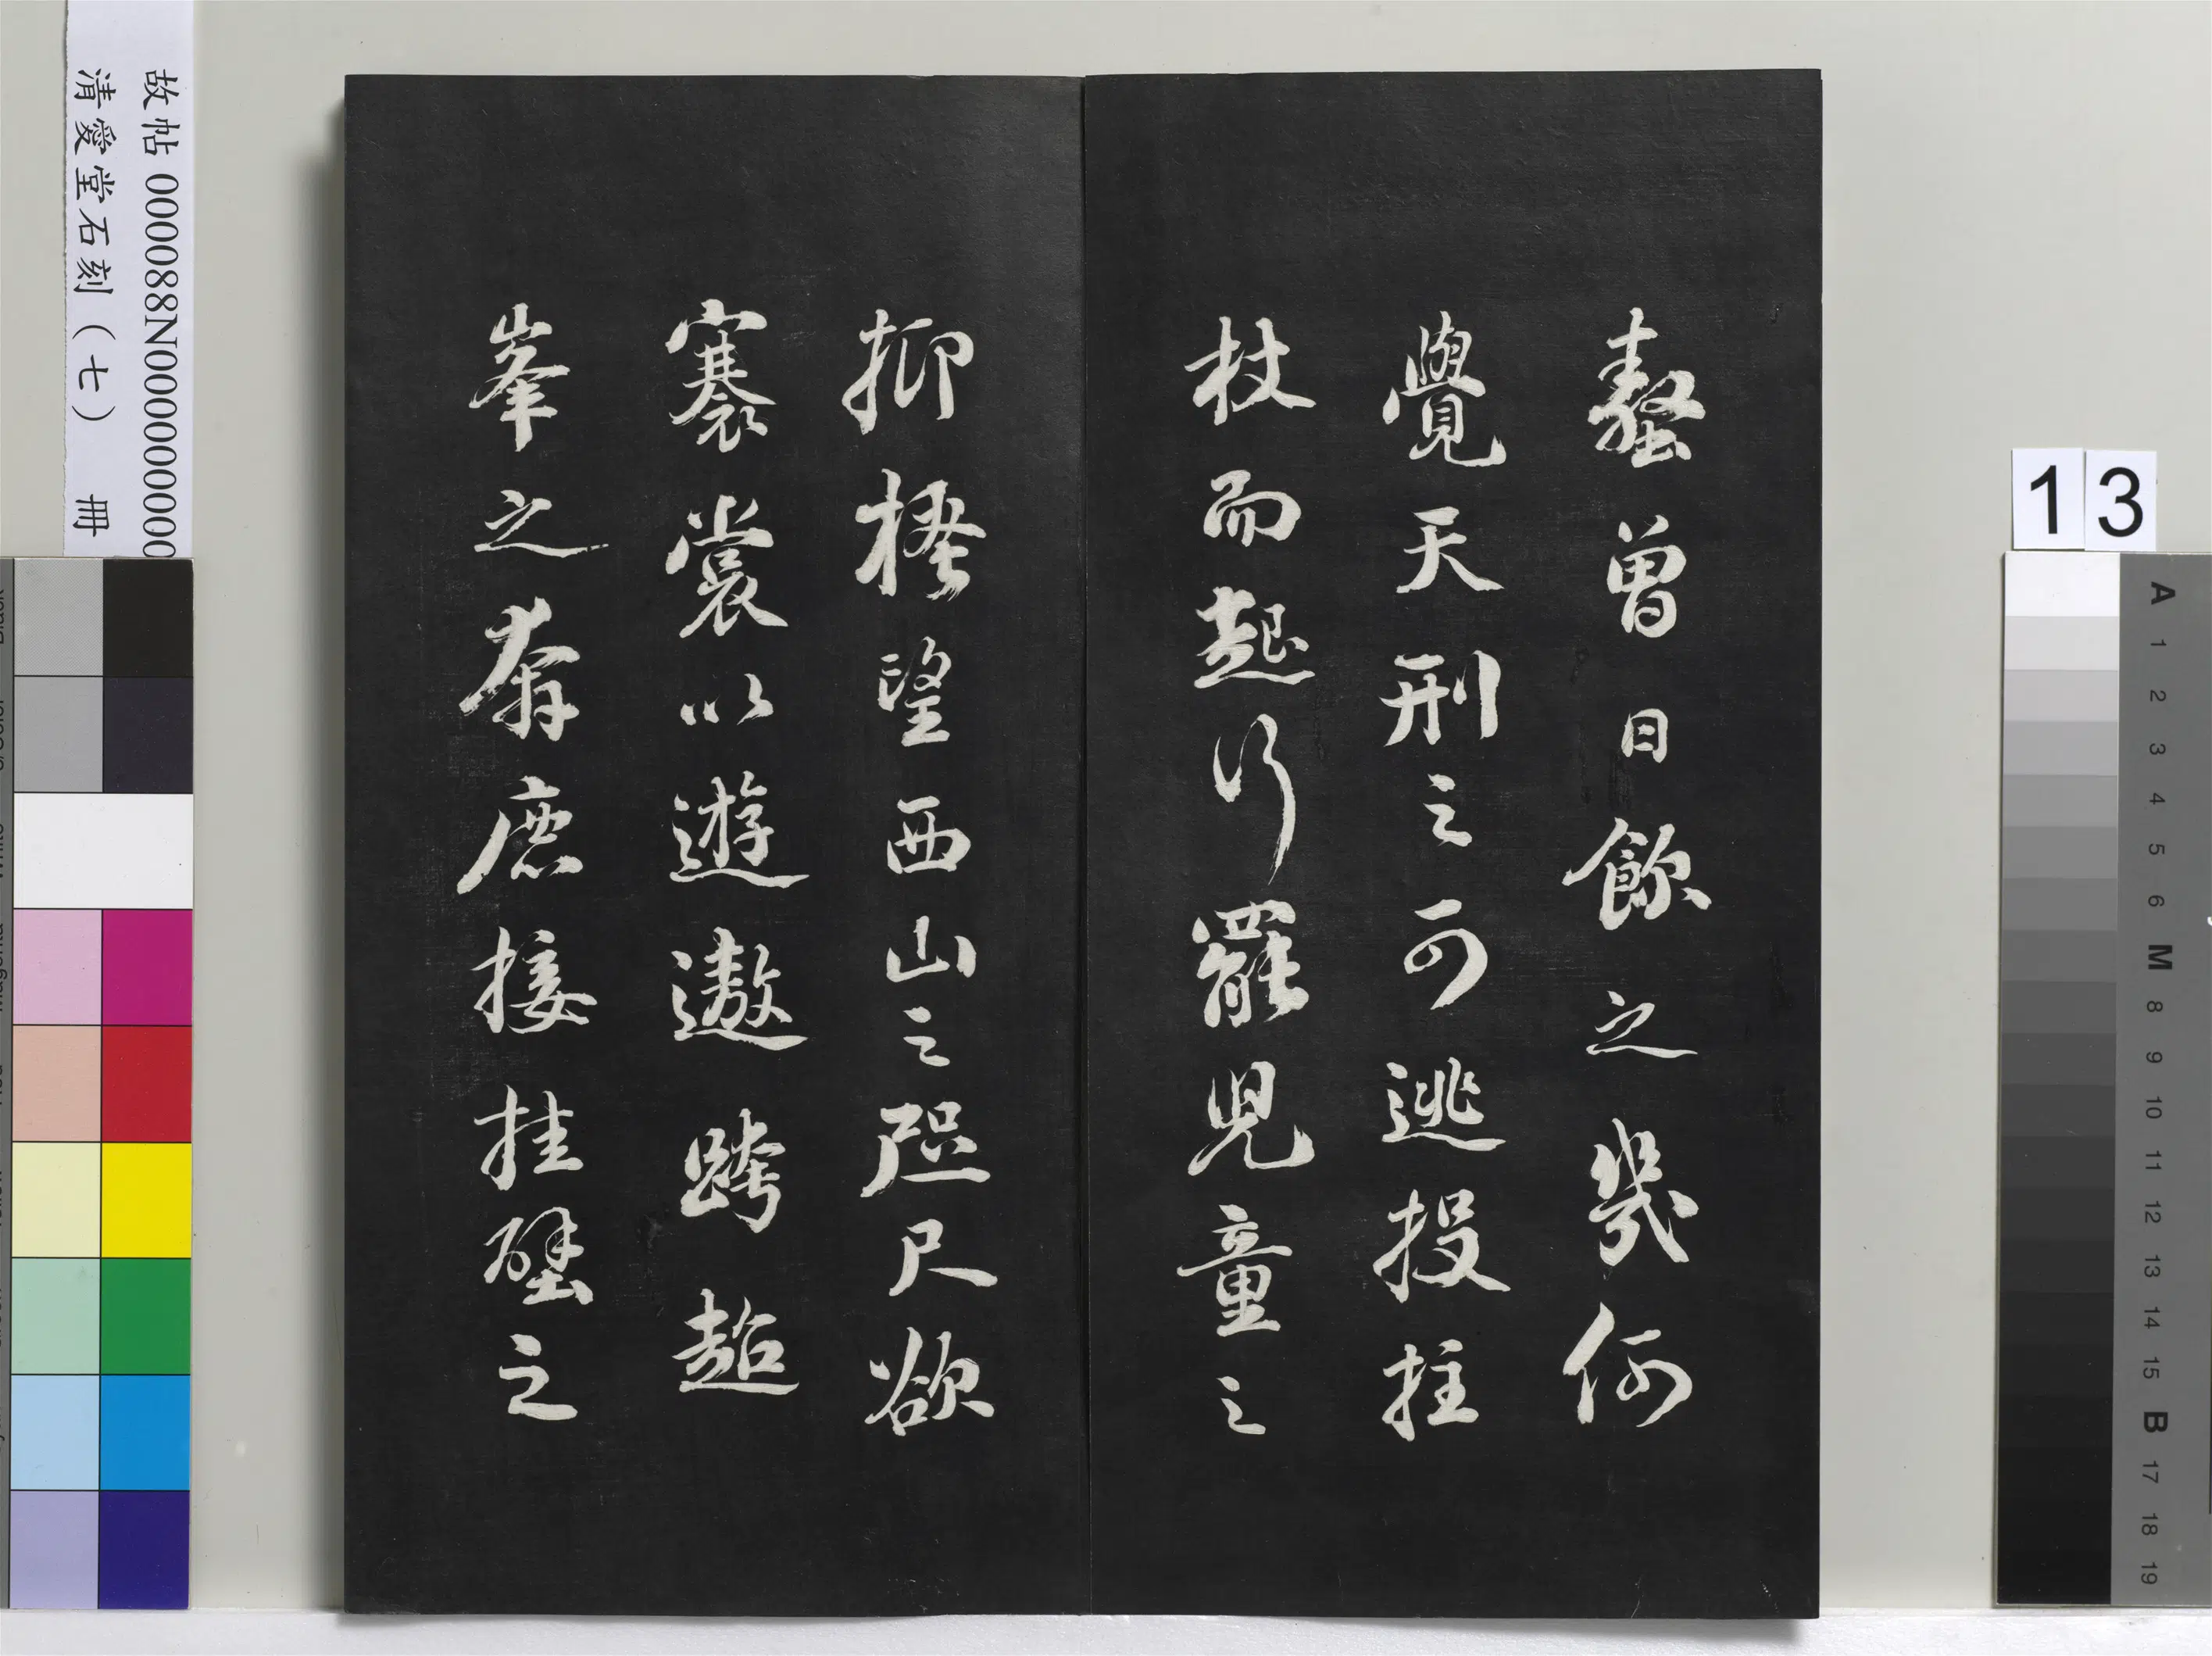 螯曾日飲之幾何
覺天刑之可逃投拄
杖而起行罷兒童之
抑搔望西山之咫尺欲
褰裳以遊遨跨超
峯之奔鹿接挂壁之
故帖 000088N000000000
清愛堂石刻(七) 冊
13
A 1 2 3 4 5 6 M 8 9 10 11 12 13 14 15 B 17 18 19